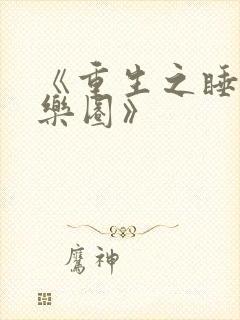 《重生之睡
樂園》
鷹神